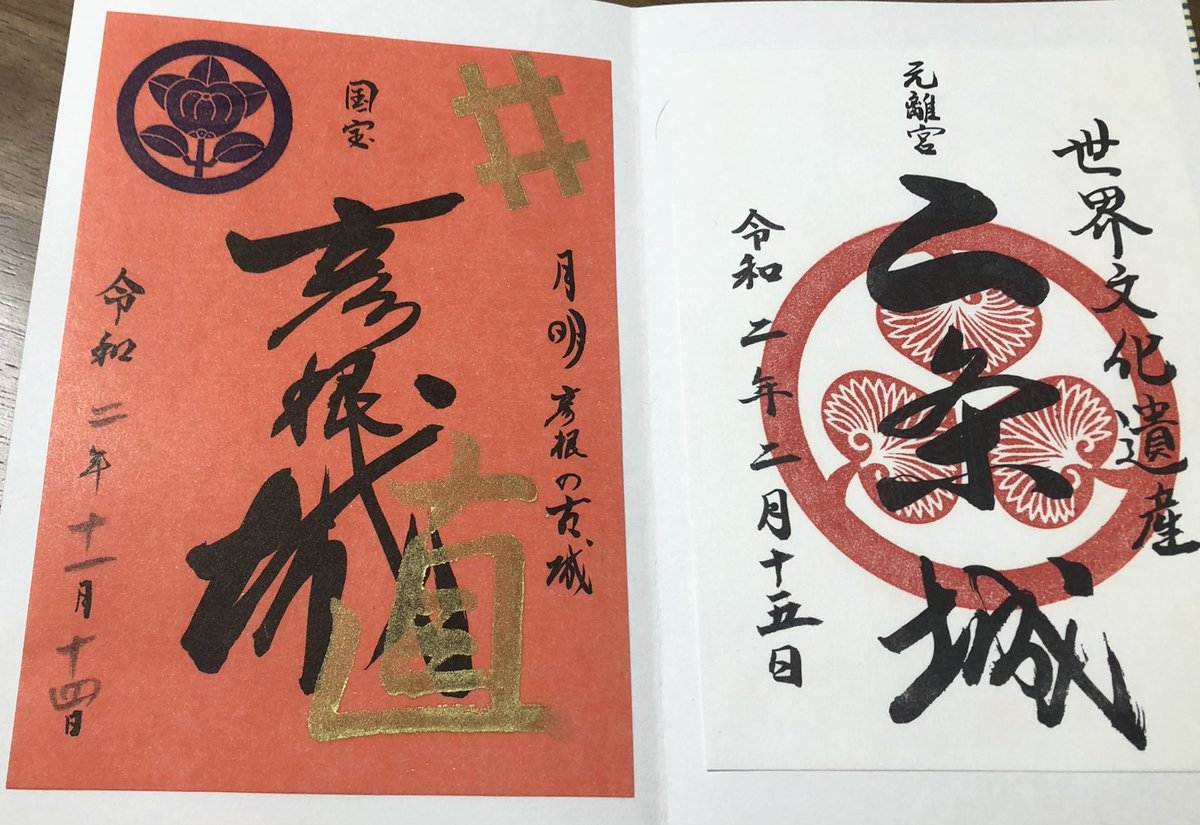 世界文化遺産
元離宮
二条城
令和二年二月十五日
井
月明彦根の古城
国宝
彦根城
直
令和二年十一月十四日